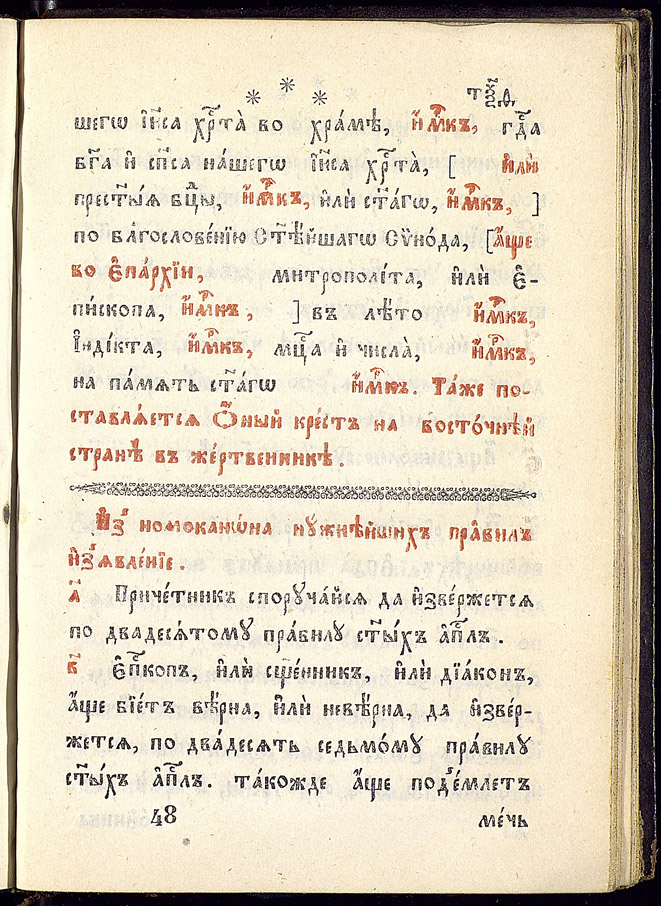 * * * т҃ѯѳ
шегѡ і҆и҃са хр҇та̀ во хра́мѣ, и҆́м҇къ, гд҇а
бг҃а и҆ сп҃са на́шегѡ і҆и҃са хр҇та̀, [ и҆лѝ
прест҃ы́ѧ бц҃ы, и҆́м҇къ, и҆лѝ ст҃а́гѡ, и҆́м҇къ, ]
по благослове́нїю Ст҃ѣ́йшагѡ Сѷно́да, [а҆́ще
во є҆па́рхїи, митрополі́та, и҆лѝ є҆-
пи́скопа, и҆́м҇къ, ] въ лѣ́то и҆́м҇къ,
і҆нді́кта, и҆́м҇къ, мц҇а и҆ числа̀, и҆́м҇къ,
на па́мѧть ст҃а́гѡ и҆́м҇къ. Та́же по-
ставлѧ́етсѧ Ѻ҆́ный кре́стъ на восто́чнѣй
странѣ̀ въ же́ртвенникѣ.
И҆з̾ номокано́на нꙋжнѣ́йшихъ пра́вилъ
и҆з̾ѧвле́нїе.
а҃ Приче́тникъ спорꙋча́йсѧ да и҆зве́ржетсѧ
по двадесѧ́томꙋ пра́вилꙋ ст҃ы́хъ а҆пⷭ҇лъ.
в҃ Є҆пⷭ҇копъ, и҆лѝ сщ҃е́нникъ, и҆лѝ дїа́конъ,
а҆́ще бїе́тъ вѣ́рна, и҆лѝ невѣ́рна, да и҆зве́р-
жетсѧ, по два́десѧть седьмо́мꙋ пра́вилꙋ
ст҃ы́хъ а҆пⷭ҇лъ. та́кожде а҆́ще под̾е́млетъ
48 ме́чь